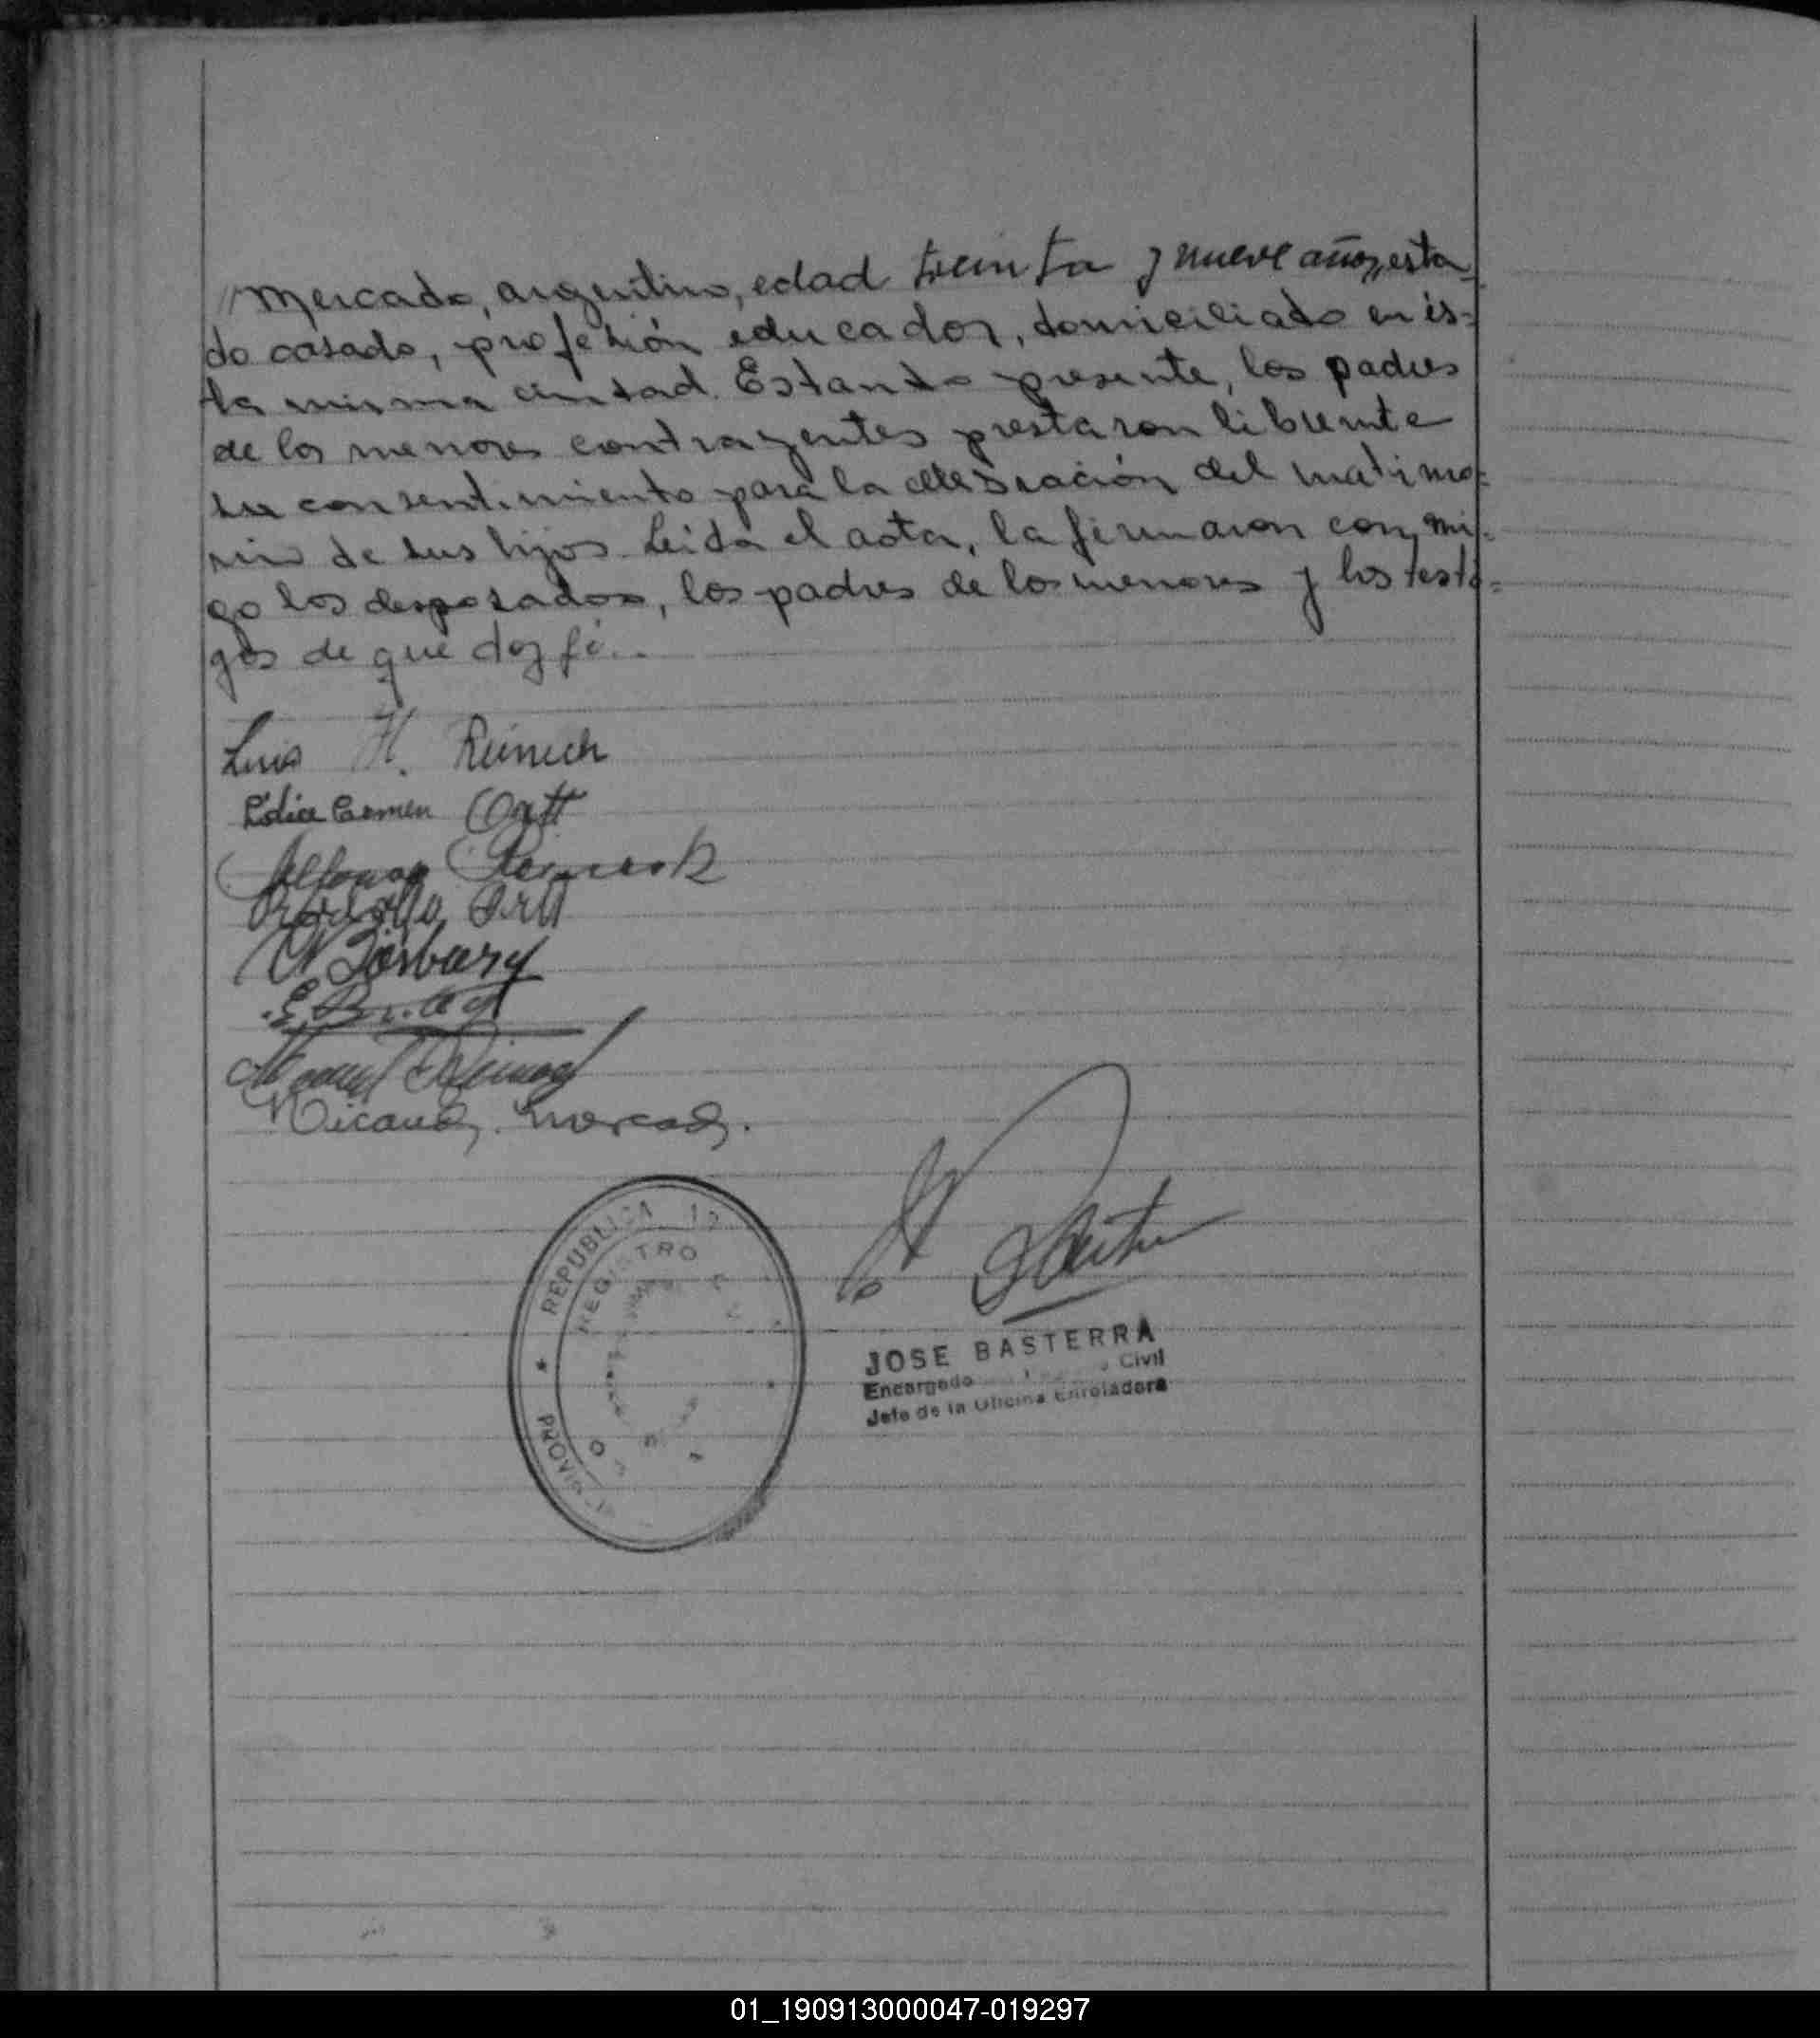 //Mercado, argentino, edad treinta y nueve años, esta
do casado, profesión educador, domiciliado en és=
ta misma ciudad. Estando presente, los padres
de los menores contrayentes prestaron libremente
su consentimiento para la celebración del matrimo=
nio de sus hijos. Leida el acta, la firmaron con mi=
go los desposados, los padres de los menores y los testi=
gos de que doy fé..-
Luis H. Reinech
Lidia Carmen Ortt
Alfonso
Rodolfo Ortt
Manuel
Nicandro Mercado.
REPUBLICA
REGISTRO
PROVINCIA
JOSE BASTERRA
Encargado Civil
Jefe de la Oficina Enroladora
01_190913000047-019297